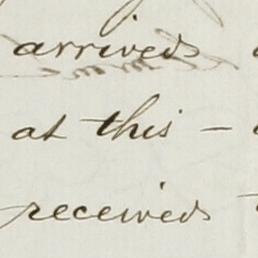 arrived
at this —
received